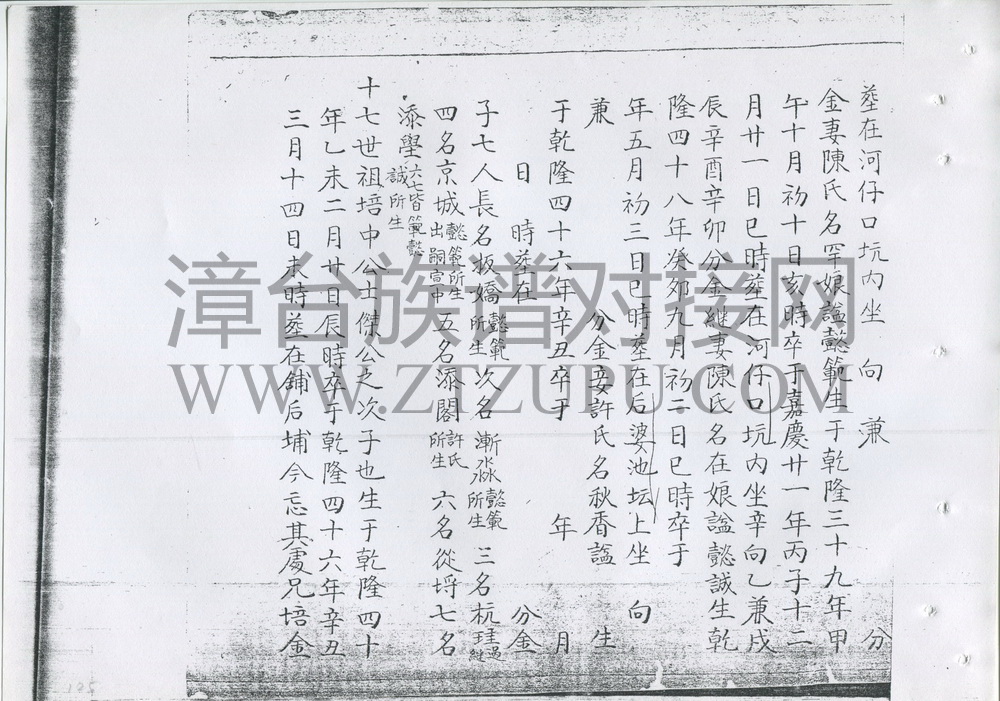 葬在河仔口坑内坐 向 兼 分
金妻陳氏名罕娘謚懿範生于乾隆三十九年甲
午十月初十日亥時卒于嘉慶廿一年丙子十二
月廿一日巳時葬在河仔口坑内坐辛向乙兼戌
辰辛酉辛卯分金継妻陳氏名在娘謚懿誠生乾
隆四十八年癸卯九月初二日巳時卒于
年五月初三日巳時葬在后婆池坛上坐 向
兼 分金妾許氏名秋香謚 生
于乾隆四十六年辛丑卒于 年 月
日 時葬在 分金
子七人長名板嬌懿範所生次名漸淼懿範所生三名杭珪過継
四名京城懿範所生出嗣宣中五名添閣許氏所生六名從埒七名
添學六七皆懿誠所生範懿
十七世祖培中公士傑公之次子也生于乾隆四十
年乙未二月廿日辰時卒于乾隆四十六年辛丑
三月十四日未時葬在舖后埔今忘其處兄培金
漳台族谱对接网
WWW.ZTZUPU.COM